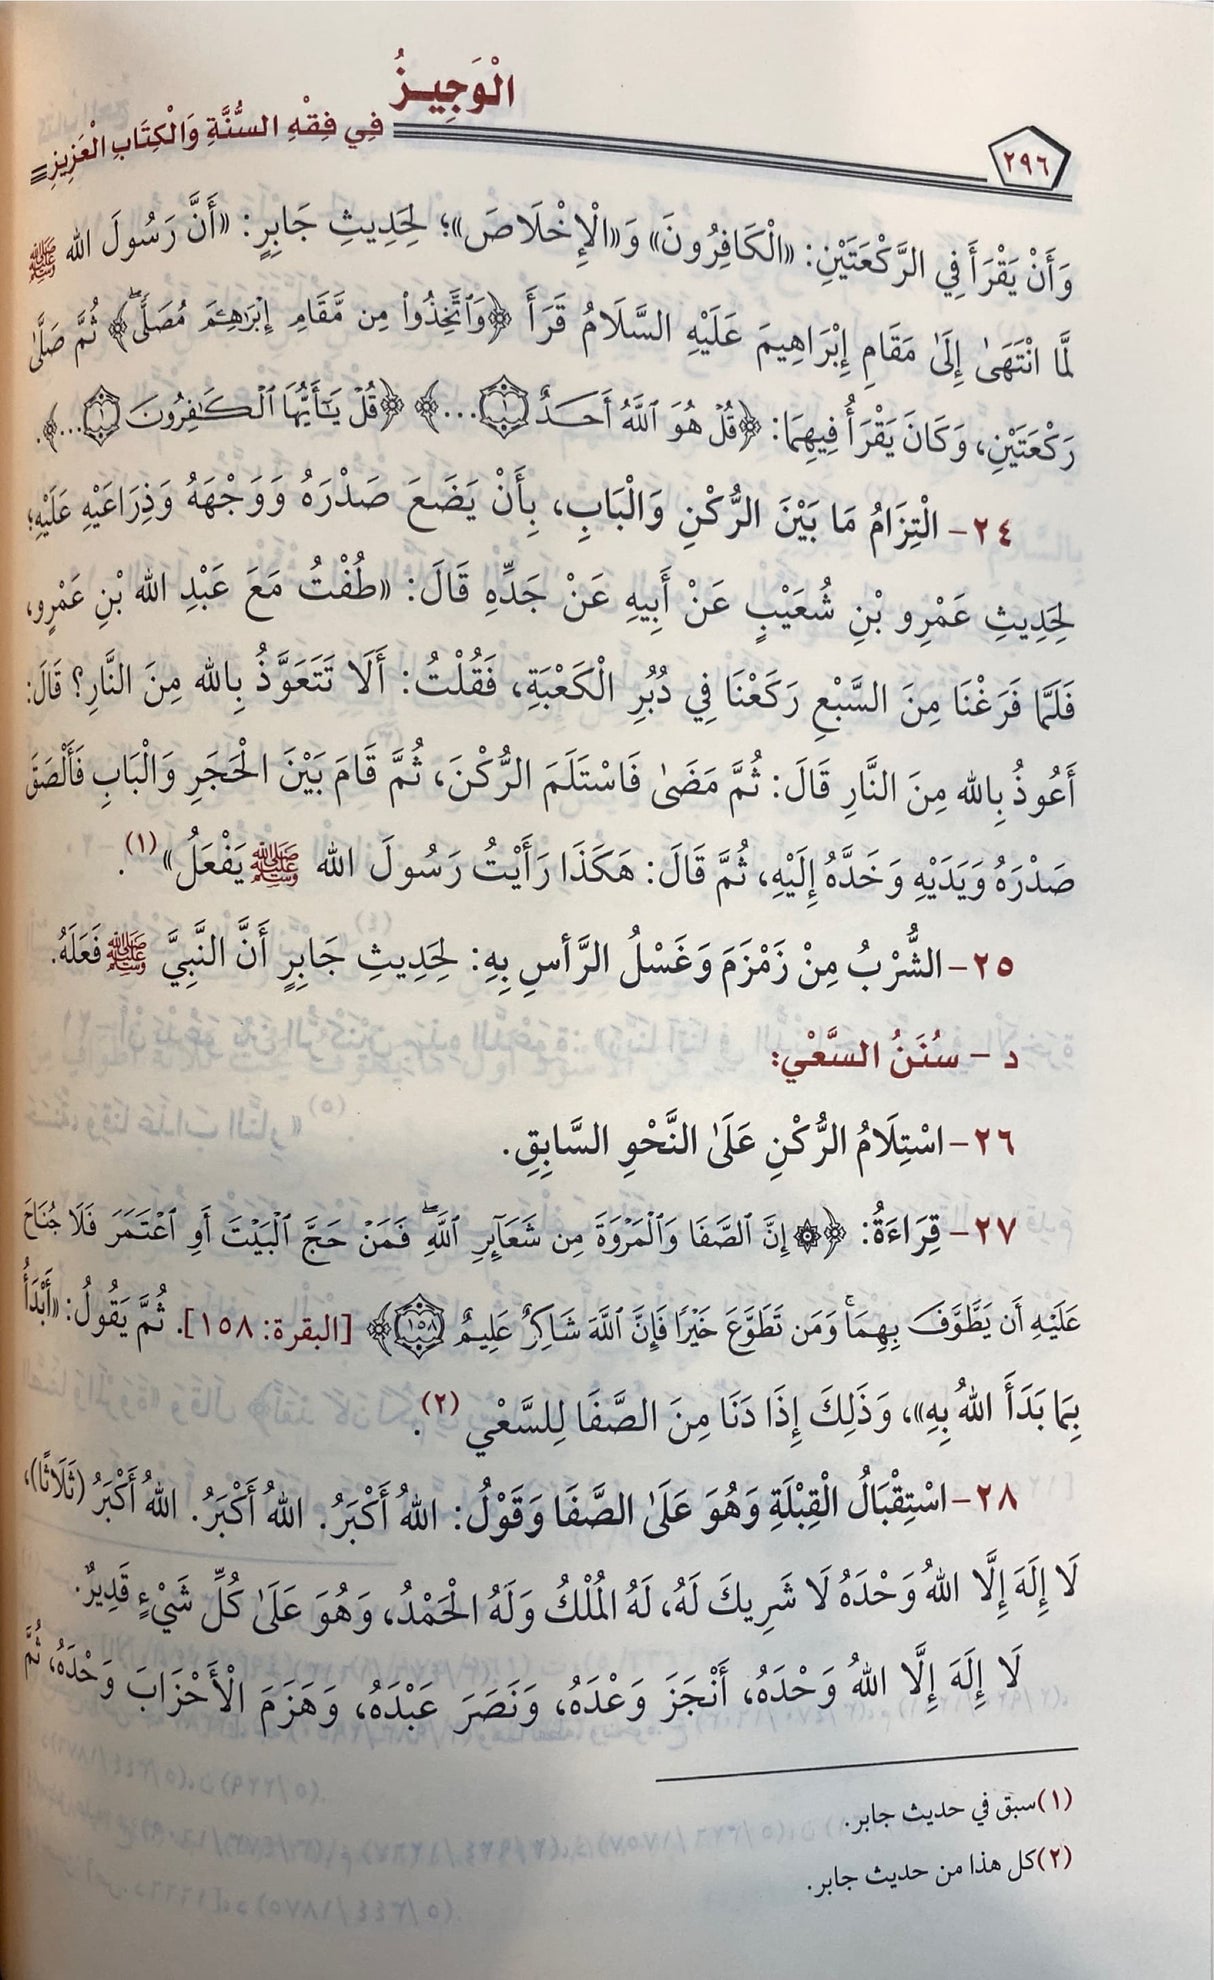 الْوَجِيزُ
فِي فِقْهِ السُّنَّةِ وَالْكِتَابِ الْعَزِيزِ
٢٩٦
وَأَنْ يَقْرَأَ فِي الرَّكْعَتَيْنِ: «الْكَافِرُونَ» وَ«الْإِخْلَاصَ»؛ لِحَدِيثِ جَابِرٍ: «أَنَّ رَسُولَ الله ﷺ
لَمَّا انْتَهَىٰ إِلَىٰ مَقَامِ إِبْرَاهِيمَ عَلَيْهِ السَّلَامُ قَرَأَ ﴿وَٱتَّخِذُوا۟ مِن مَّقَامِ إِبْرَٰهِۦمَ مُصَلًّى ۖ﴾ ثُمَّ صَلَّىٰ
رَكْعَتَيْنِ، وَكَانَ يَقْرَأُ فِيهِمَا: ﴿قُلْ هُوَ ٱللَّهُ أَحَدٌ ١...﴾ ﴿قُلْ يَـٰٓأَيُّهَا ٱلْكَـٰفِرُونَ ١...﴾.
٢٤- الْتِزَامُ مَا بَيْنَ الرُّكْنِ وَالْبَابِ، بِأَنْ يَضَعَ صَدْرَهُ وَوَجْهَهُ وَذِرَاعَيْهِ عَلَيْهِ؛
لِحَدِيثِ عَمْرِو بْنِ شُعَيْبٍ عَنْ أَبِيهِ عَنْ جَدِّهِ قَالَ: «طُفْتُ مَعَ عَبْدِ الله بْنِ عَمْرٍو،
فَلَمَّا فَرَغْنَا مِنَ السَّبْعِ رَكَعْنَا فِي دُبُرِ الْكَعْبَةِ، فَقُلْتُ: أَلَا تَتَعَوَّذُ بِالله مِنَ النَّارِ؟ قَالَ:
أَعُوذُ بِالله مِنَ النَّارِ قَالَ: ثُمَّ مَضَىٰ فَاسْتَلَمَ الرُّكْنَ، ثُمَّ قَامَ بَيْنَ الْحَجَرِ وَالْبَابِ فَأَلْصَقَ
صَدْرَهُ وَيَدَيْهِ وَخَدَّهُ إِلَيْهِ، ثُمَّ قَالَ: هَكَذَا رَأَيْتُ رَسُولَ الله ﷺ يَفْعَلُ»(١).
٢٥- الشُّرْبُ مِنْ زَمْزَمَ وَغَسْلُ الرَّأسِ بِهِ: لِحَدِيثِ جَابِرٍ أَنَّ النَّبِيَّ ﷺ فَعَلَهُ.
د - سُنَنُ السَّعْيِ:
٢٦- اسْتِلَامُ الرُّكْنِ عَلَىٰ النَّحْوِ السَّابِقِ.
٢٧- قِرَاءَةُ: ﴿۞ إِنَّ ٱلصَّفَا وَٱلْمَرْوَةَ مِن شَعَآئِرِ ٱللَّهِ ۖ فَمَنْ حَجَّ ٱلْبَيْتَ أَوِ ٱعْتَمَرَ فَلَا جُنَاحَ
عَلَيْهِ أَن يَطَّوَّفَ بِهِمَا ۚ وَمَن تَطَوَّعَ خَيْرًا فَإِنَّ ٱللَّهَ شَاكِرٌ عَلِيمٌ ١٥٨﴾ [البقرة: ١٥٨]. ثُمَّ يَقُولُ: «أَبْدَأُ
بِمَا بَدَأَ اللهُ بِهِ»، وَذَلِكَ إِذَا دَنَا مِنَ الصَّفَا لِلسَّعْيِ (٢).
٢٨- اسْتِقْبَالُ الْقِبْلَةِ وَهُوَ عَلَىٰ الصَّفَا وَقَوْلُ: اللهُ أَكْبَرُ. اللهُ أَكْبَرُ. اللهُ أَكْبَرُ (ثَلَاثًا)،
لَا إِلَهَ إِلَّا اللهُ وَحْدَهُ لَا شَرِيكَ لَهُ، لَهُ الْمُلْكُ وَلَهُ الْحَمْدُ، وَهُوَ عَلَىٰ كُلِّ شَيْءٍ قَدِيرٌ.
لَا إِلَهَ إِلَّا اللهُ وَحْدَهُ، أَنْجَزَ وَعْدَهُ، وَنَصَرَ عَبْدَهُ، وَهَزَمَ الْأَحْزَابَ وَحْدَهُ، ثُمَّ
(١) سبق في حديث جابر.
(٢) كل هذا من حديث جابر.